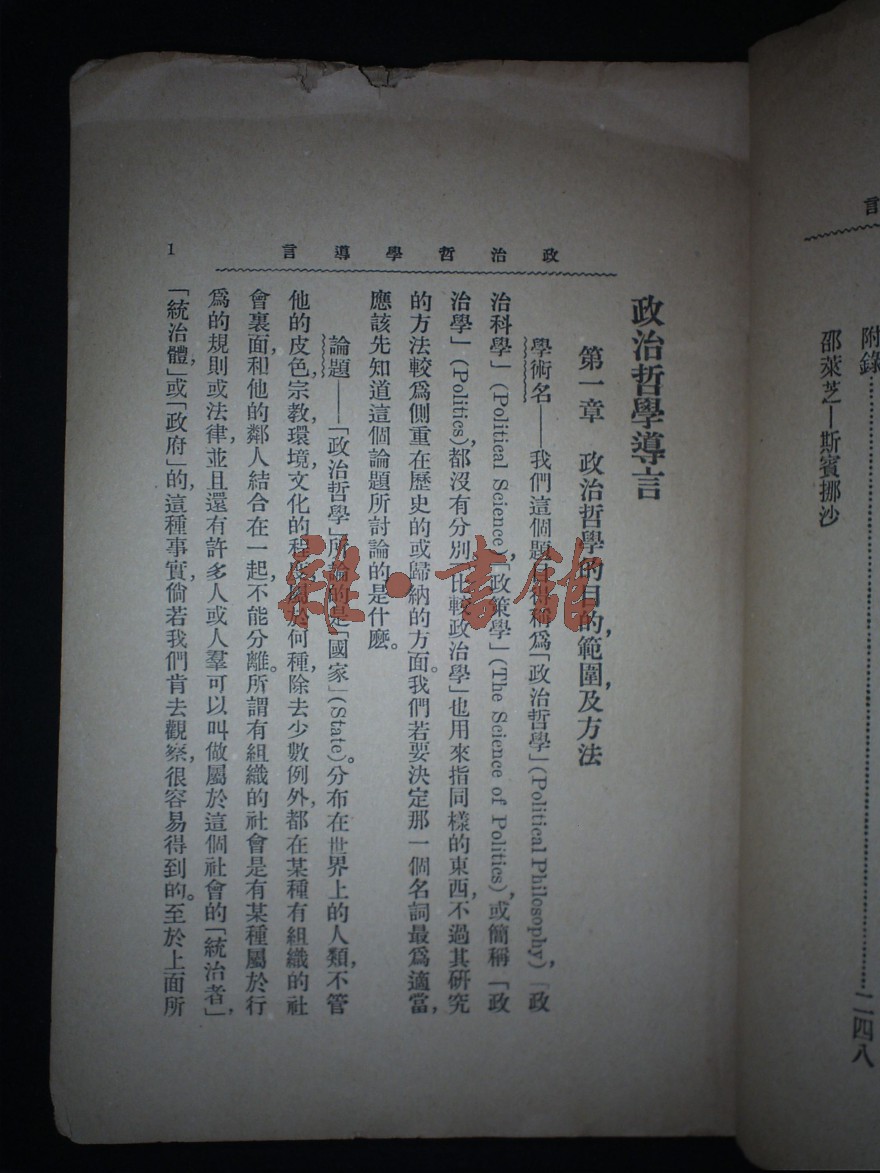 言
附錄……………………………………二四八
邵萊芝—斯賓挪沙
政治哲學導言
1
政治哲學導言
第一章　政治哲學的目的，範圍及方法
學術名——我們這個題目得稱爲「政治哲學」(Political Philosophy)，「政
治科學」(Political Science)，「政策學」(The Science of Politics)，或簡稱「政
治學」(Politics)都沒有分別。「比較政治學」也用來指同樣的東西，不過其研究
的方法較爲側重在歷史的或歸納的方面。我們若要決定那一個名詞最爲適當，
應該先知道這個論題所討論的是什麼。
論題——「政治哲學」所論的是「國家」(State)。分布在世界上的人類，不管
他的皮色，宗教，環境，文化的程度屬於何種，除去少數例外，都在某種有組織的社
會裏面，和他的鄰人結合在一起，不能分離。所謂有組織的社會是有某種屬於行
爲的規則或法律，並且還有許多人或人羣可以叫做屬於這個社會的「統治者」，
「統治體」，或「政府」的，這種事實，倘若我們肯去觀察，很容易得到的。至於上面所
雜·書館